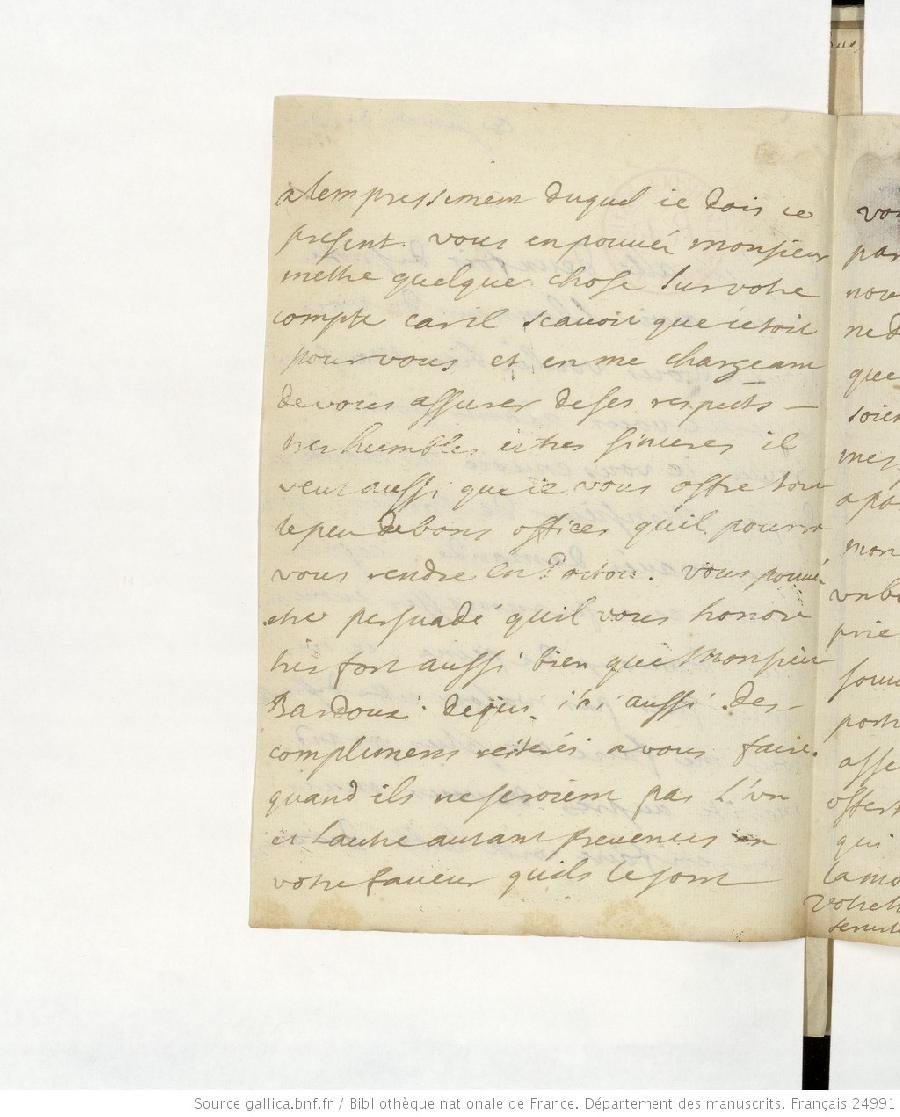 a lempressement duquel ie dois ce
present. vous en pouvés monsieur
mettre quelque chose sur votre
compte car il scavoit que cetoit
pour vous et en me chargeant
de vous assurer de ses respects –
tres humbles et tres sinceres il
veut aussi que ie vous offre tout
le peu de bons offices quil pourra
vous rendre en Poitou. vous pouvés
etre persuadé quil vous honore
tres fort aussi bien que Monsieur
Bardoux de qui iai aussi des –
complimens reiterés a vous faire.
quand ils ne seroient pas L'un
et Lautre autant prevenus en
votre faveur quils le sont
vou
par
nou
que
soien
mes
a pa
mon
un b
prie
souv
port
asse
offert
qui
la mo
votre